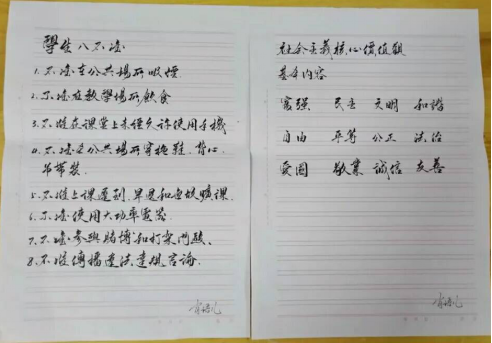 學生八不准
1.不准在公共場所吸煙
2.不准在教學場所飲食
3.不准在課堂上未經允許使用手機
4.不准在公共場所穿拖鞋、背心
吊帶裝
5.不准上課遲到、早退和無故曠課.
6.不准使用大功率電器
7.不准參與賭博和打架鬥毆、
8.不准傳播違法違規言論.
社会主義核心價值觀
基本内容
富强 民主 文明 和諧
自由 平等 公正 法治
愛國 敬業 誠信 友善